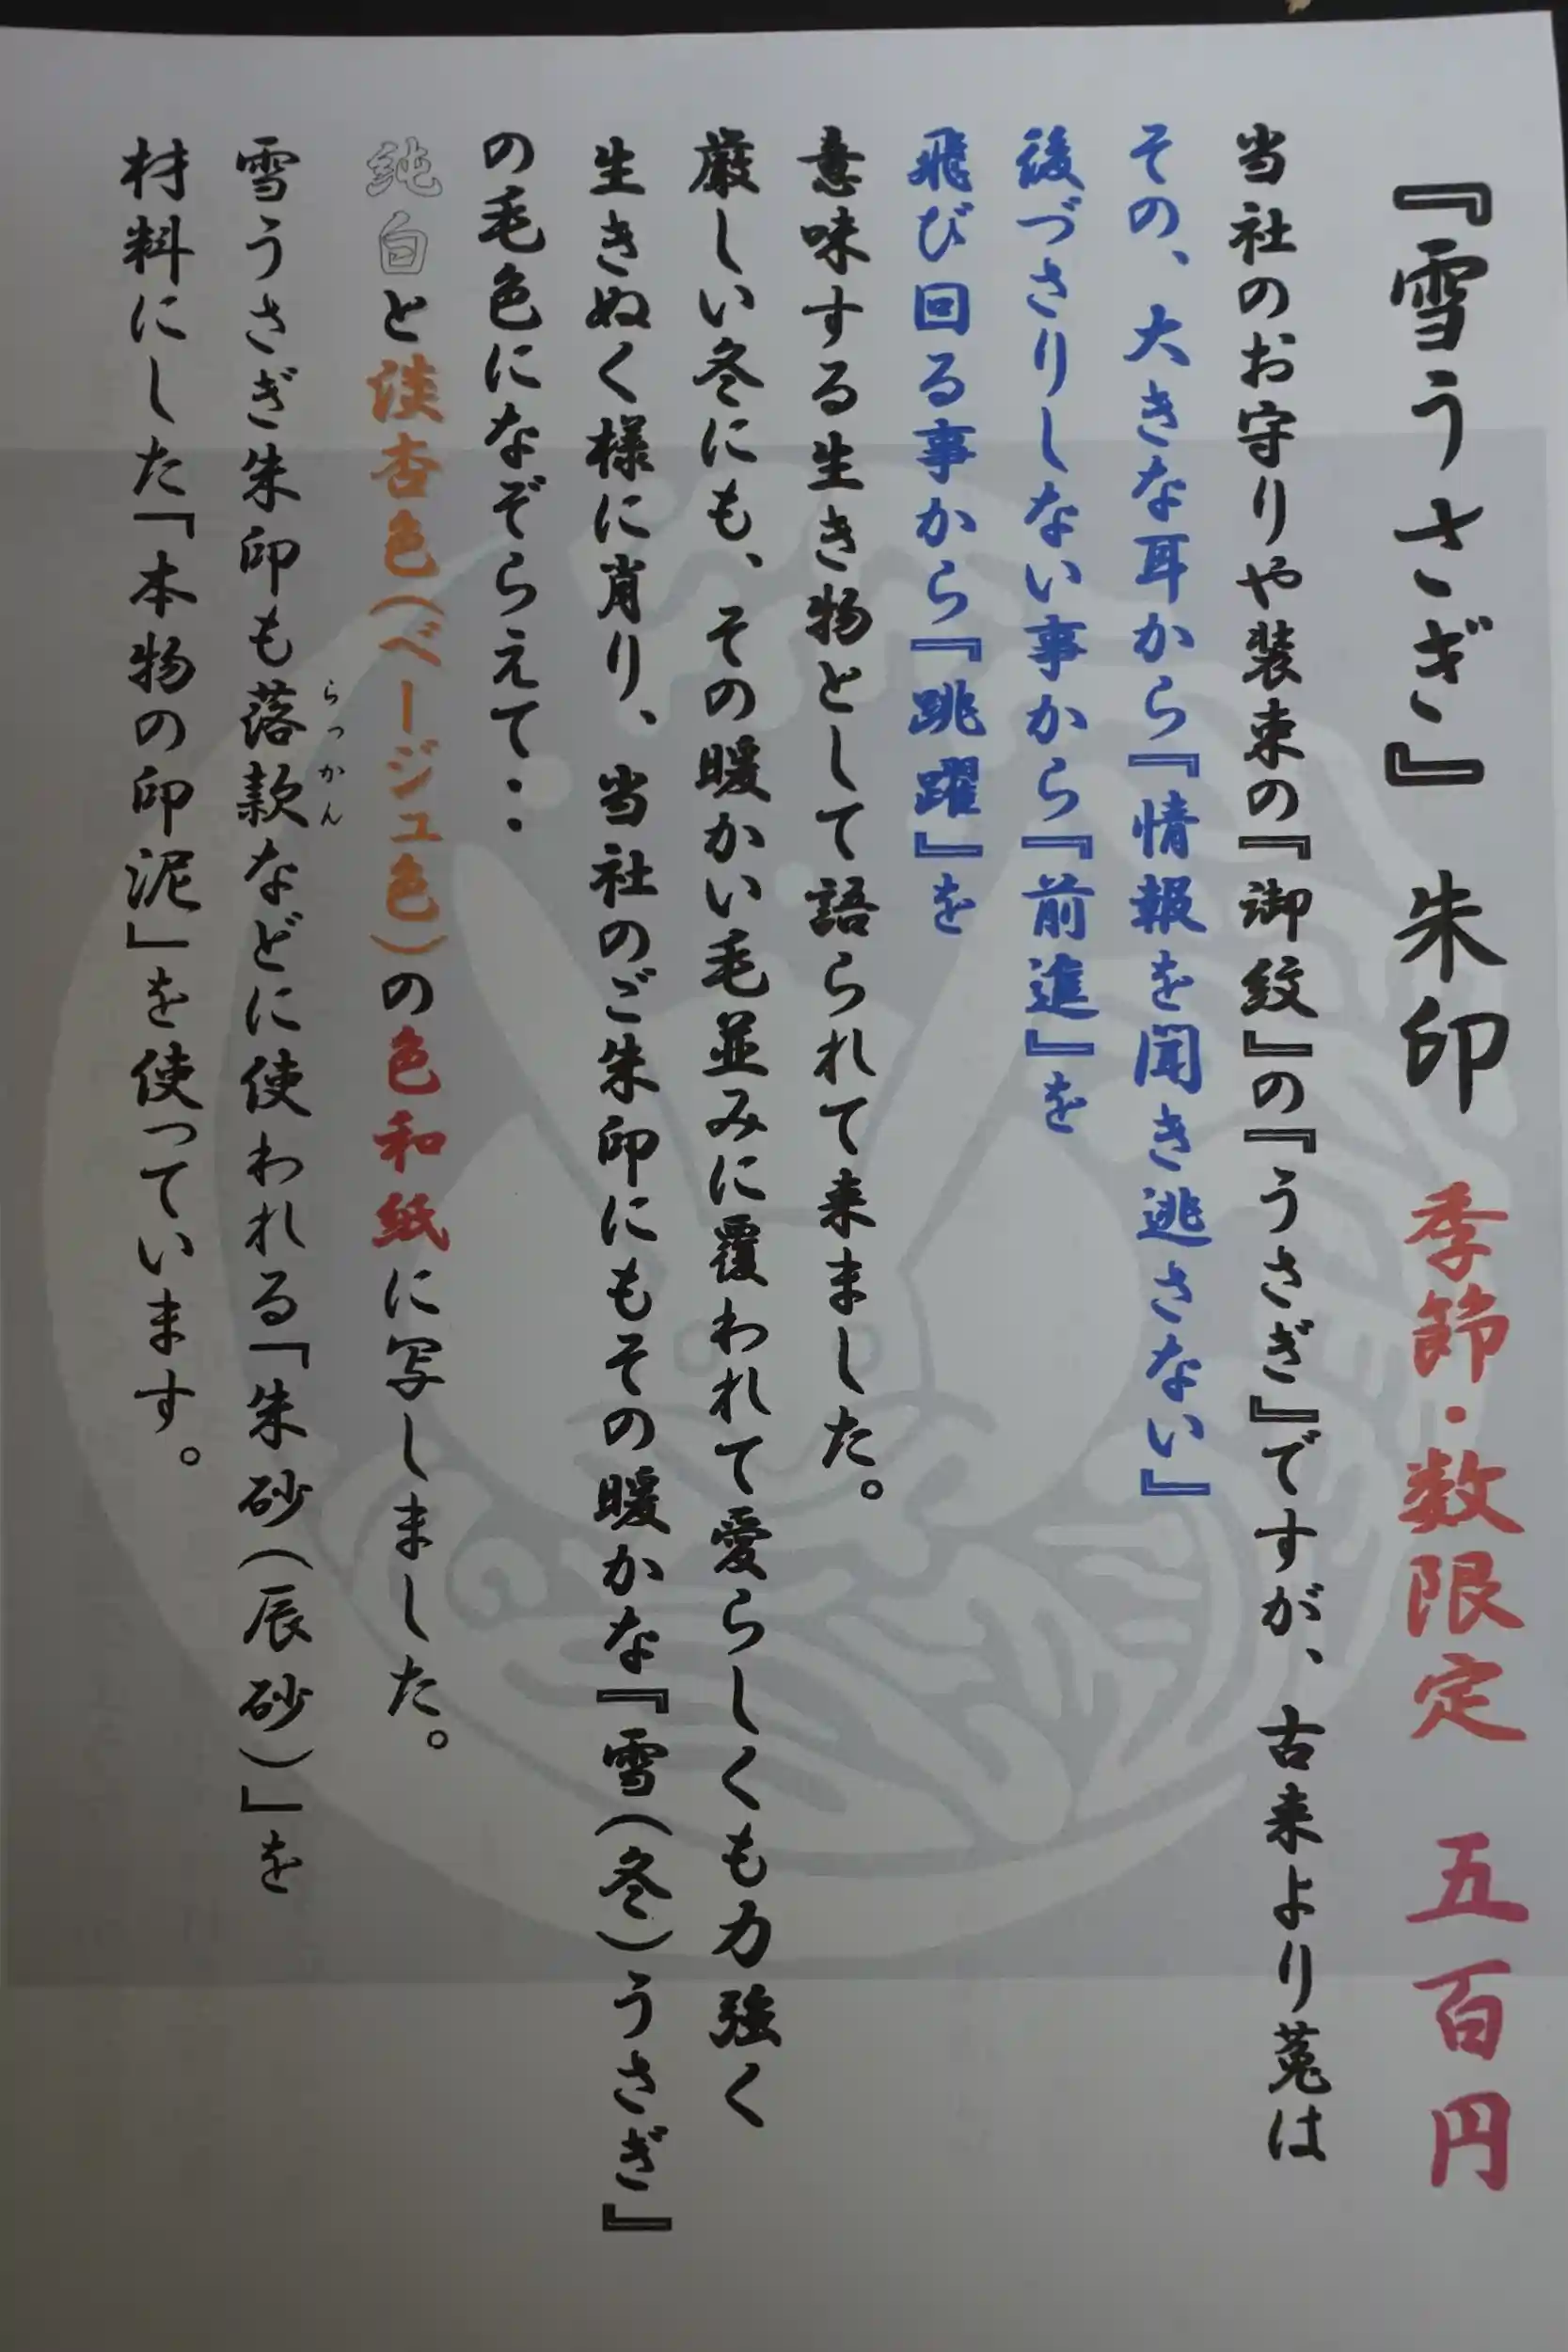 『雪うさぎ』 朱印 季節・数限定 五百円
当社のお守りや装束の『御紋』の『うさぎ』ですが、古来より菟は
その、大きな耳から『情報を聞き逃さない』
後づさりしない事から『前進』を
飛び回る事から『跳躍』を
意味する生き物として語られて来ました。
厳しい冬にも、その暖かい毛並みに覆われて愛らしくも力強く
生きぬく様に肖り、当社のご朱印にもその暖かな『雪(冬)うさぎ』
の毛色になぞらえて：
純白と淡杏色(ベージュ色)の色和紙に写しました。
雪うさぎ朱印も落款などに使われる「朱砂(辰砂)」を
らっかん
材料にした「本物の印泥」を使っています。